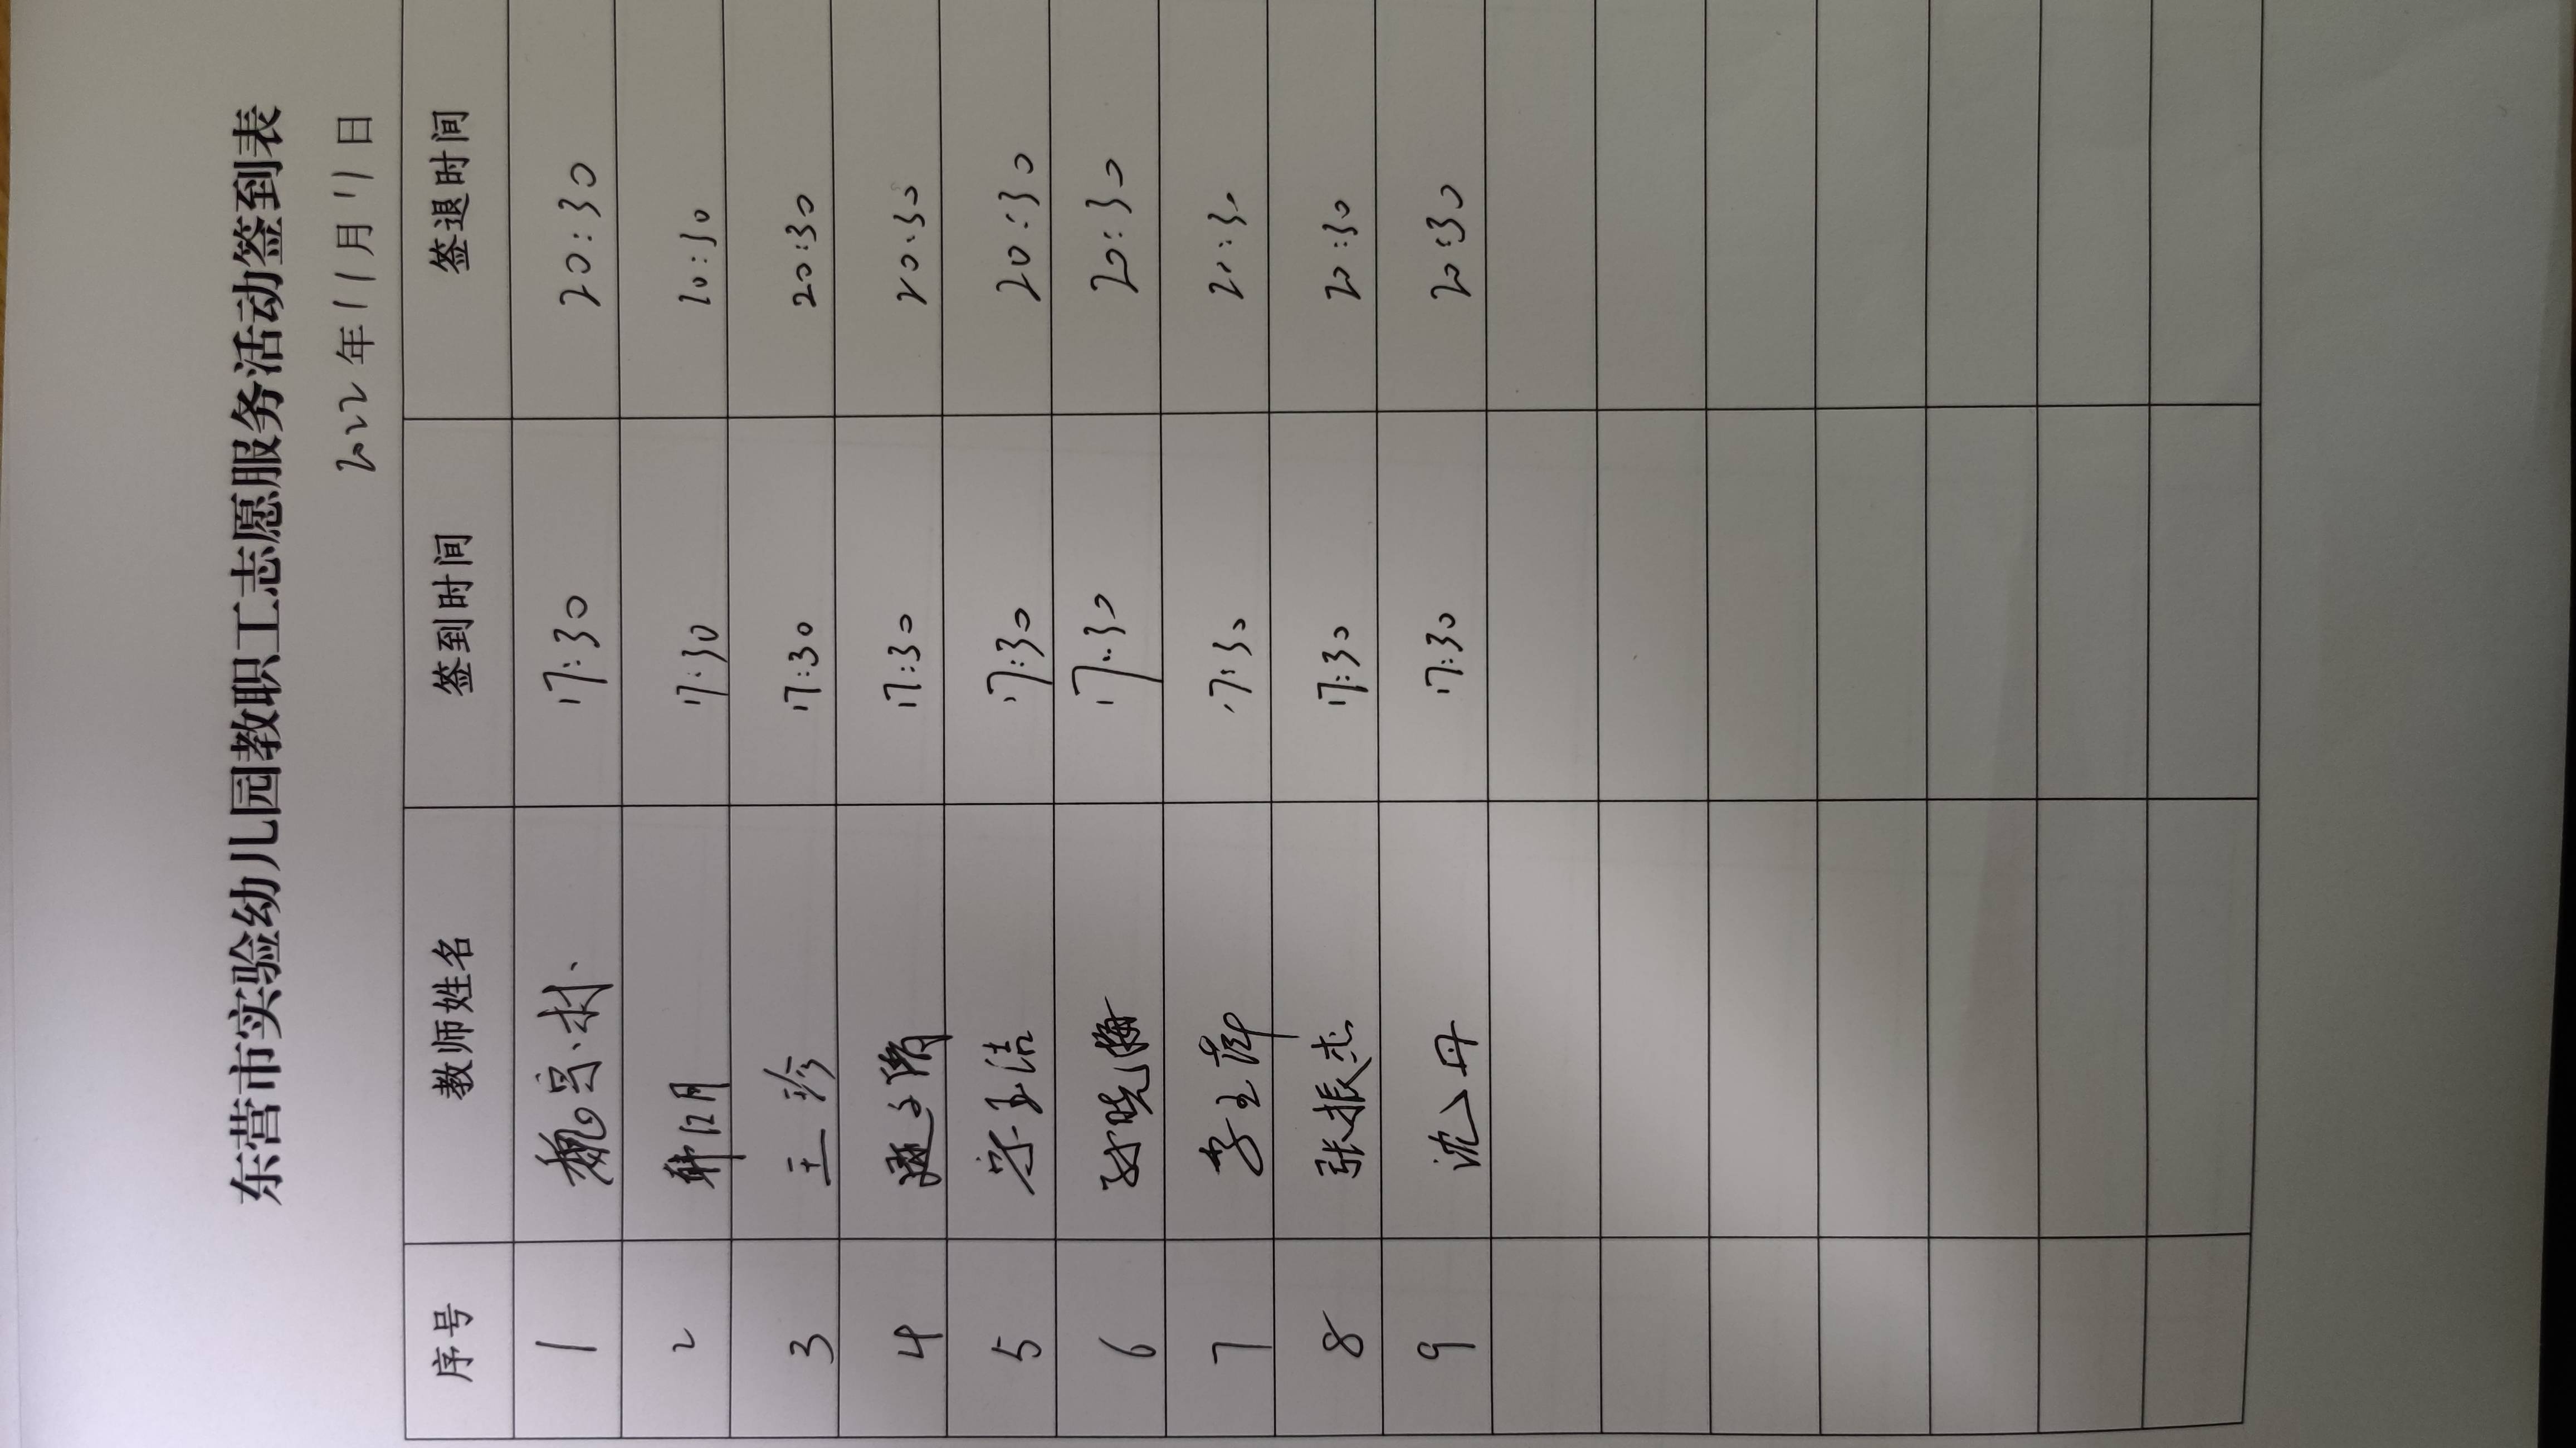 东营市实验幼儿园教职工志愿服务活动签到表
2022年11月11日
序号 教师姓名 签到时间 签退时间
1 17:30 20:30
2 韩月 17:30 20:30
3 王珍 17:30 20:30
4 17:30 20:30
5 宋玉洁 17:30 20:30
6 孙晓梅 17:30 20:30
7 李玉萍 17:30 20:30
8 张振杰 17:30 20:30
9 沈丹 17:30 20:30